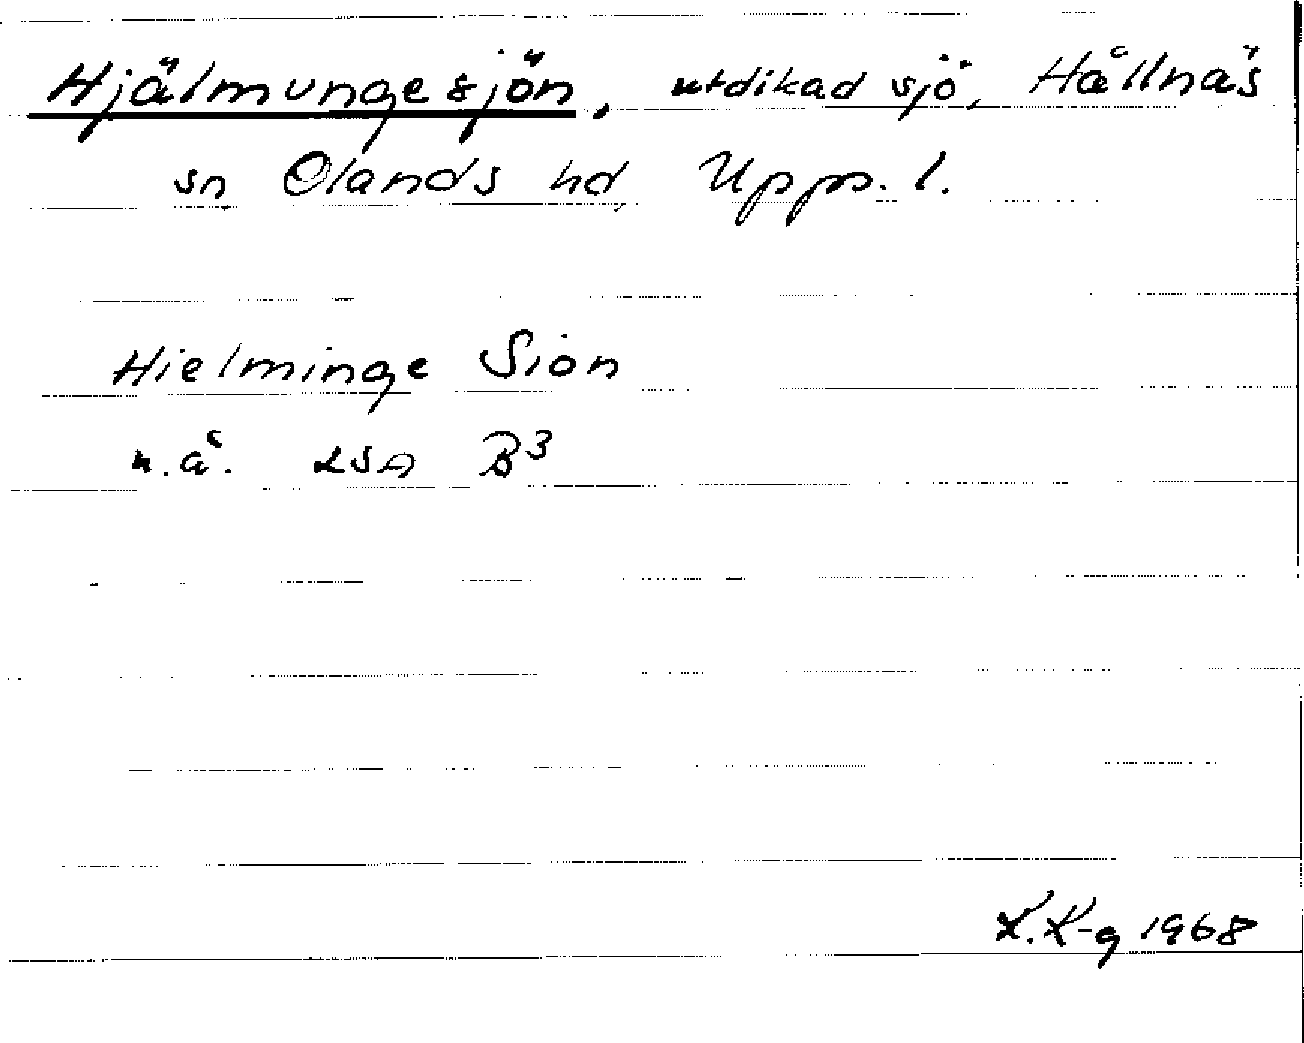 Hjälmungesjön, utdikad sjö, Hållnäs
sn, Olands hd, Upps. l.
Hielminge Siön
n.å. LSA B3
K.K-g 1968